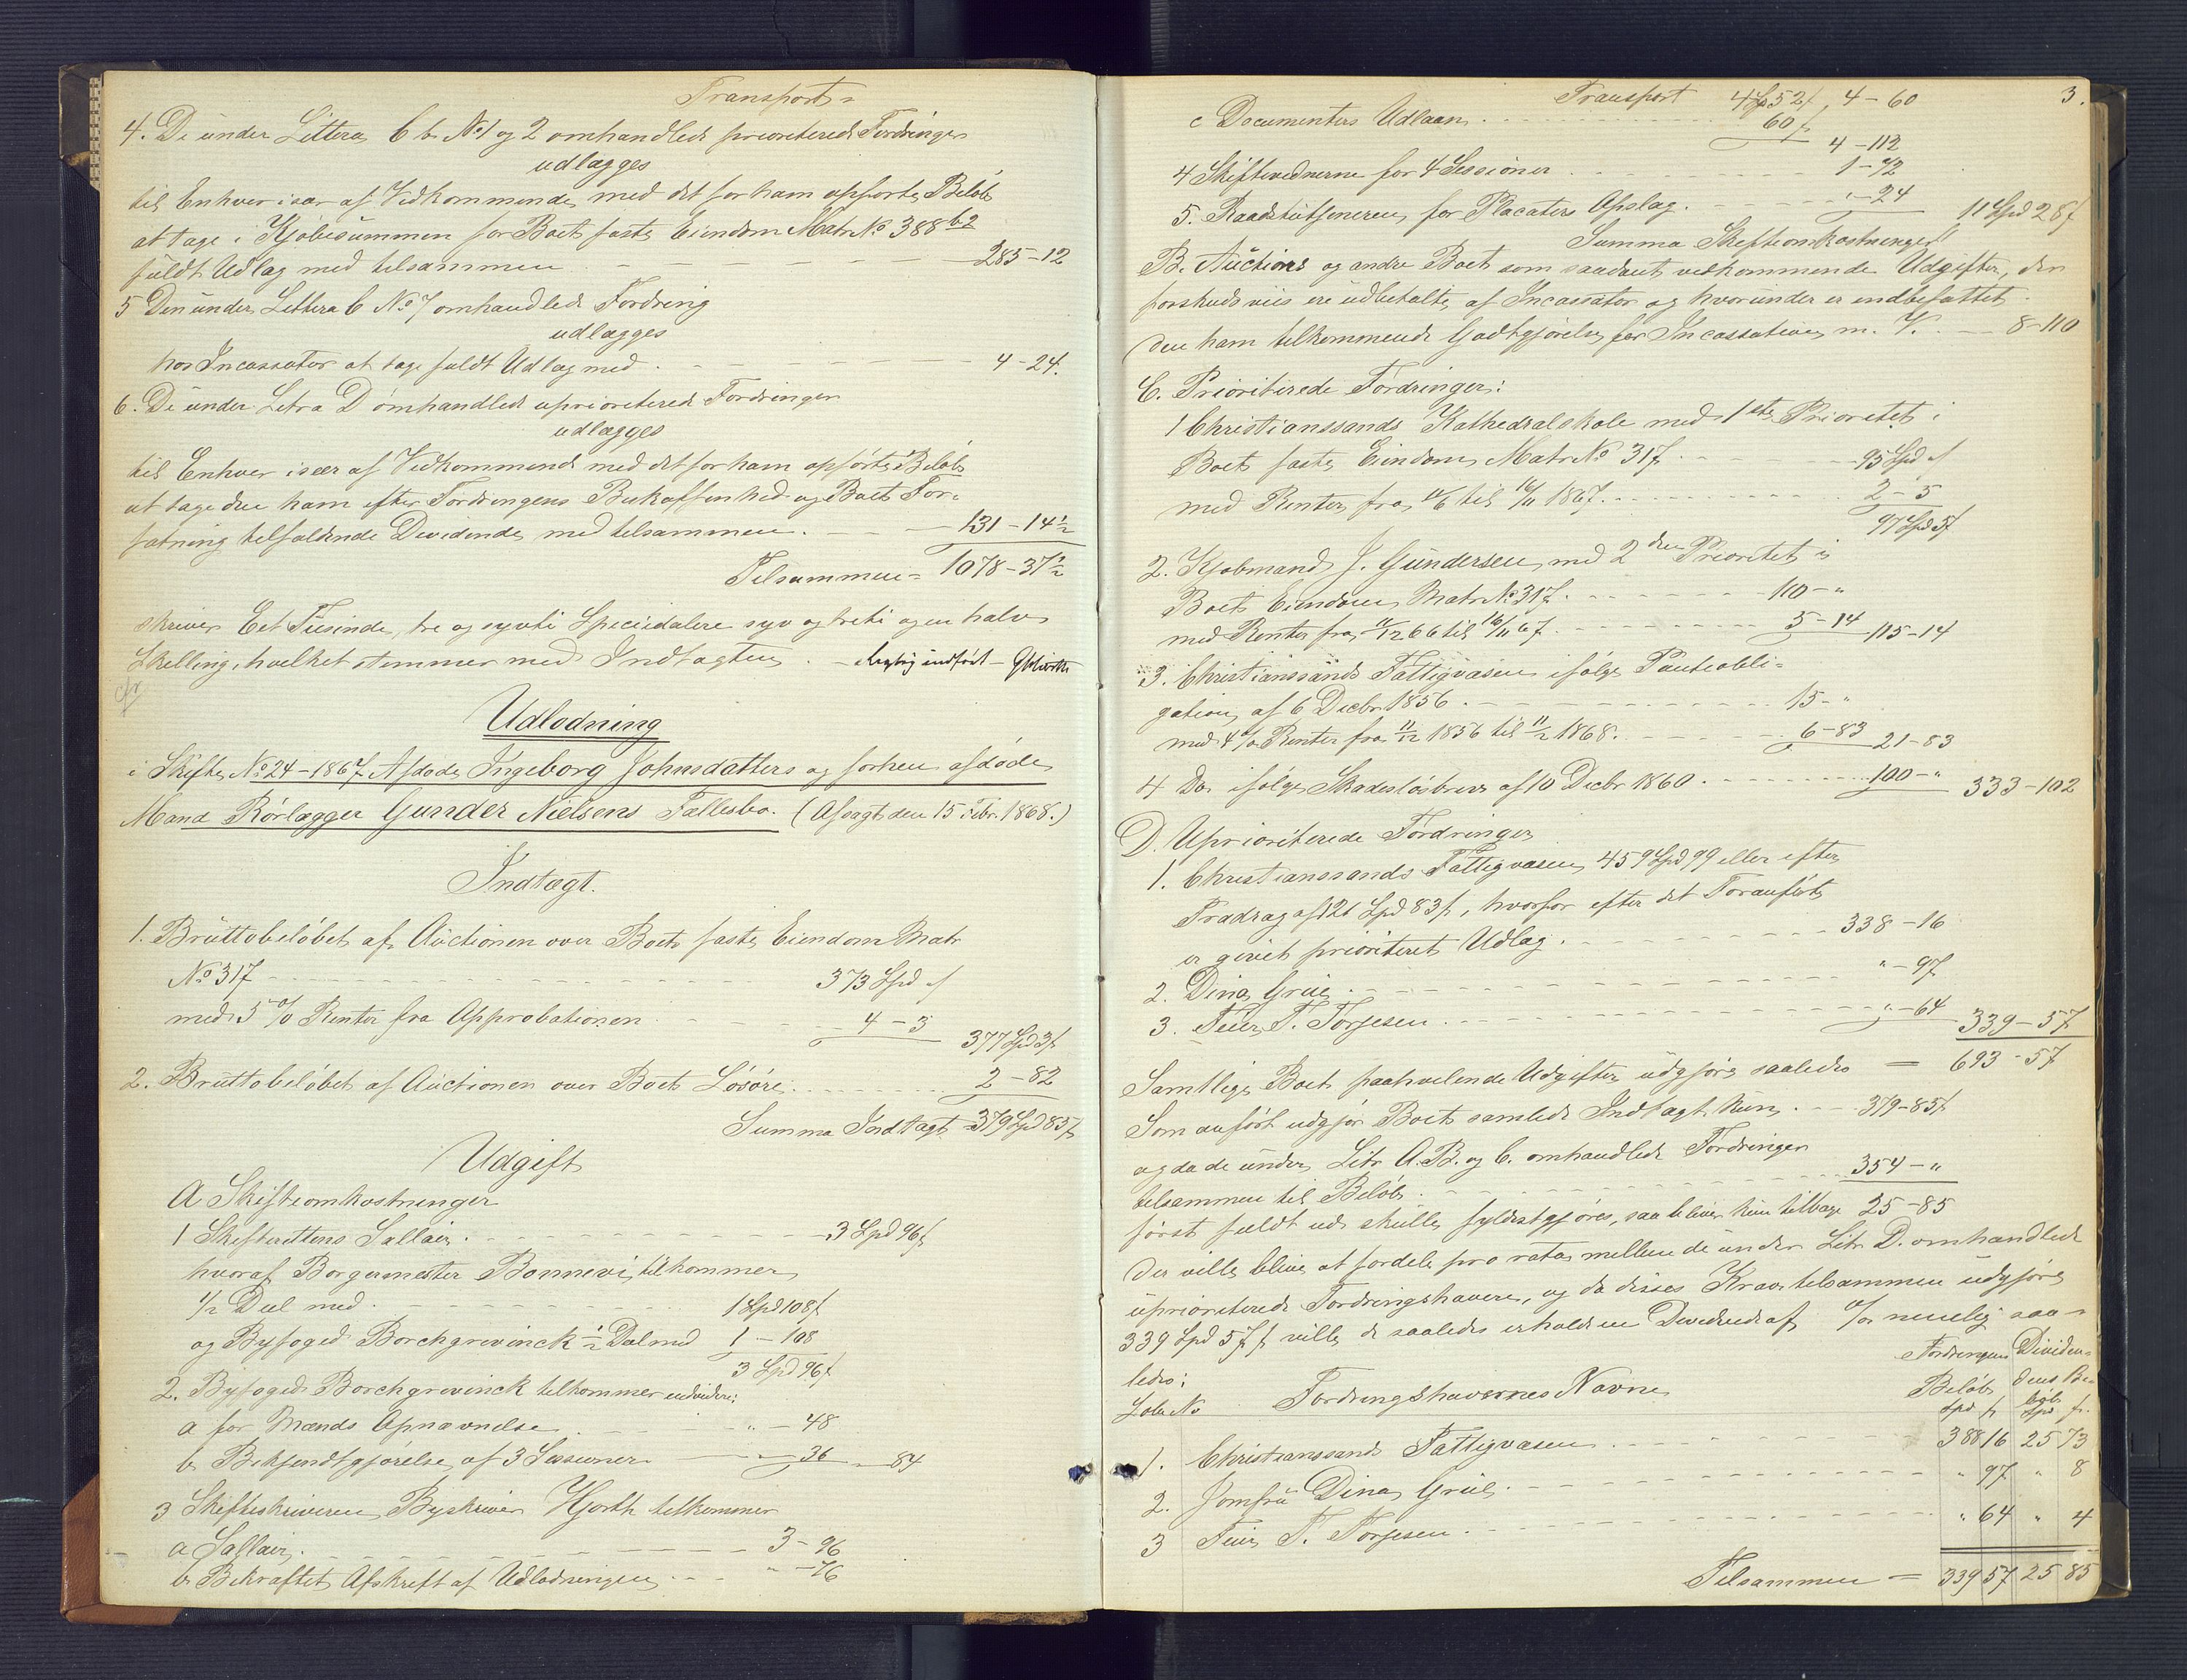 Transport =
4. De under Littera C b. No 1 og 2 omhandlede prioriterede Fordringer
udlægges
til Enhver især af Vedkommende med det for ham opførte Beløb
at tage i Kjøbesummen for Boets faste Eiendom Matr No 388 b2
fuldt Udlæg med tilsammen 285-12
5 Den under Littera C No 7 omhandlede Fordring
udlægges
hos Incassator at tage fuldt Udlæg med 4-24.
6. De under Litra D omhandlede uprioriterede Fordringer
udlægges
til Enhver især af Vedkommende med det for ham opførte Beløb
at tage den ham efter Fordringens Beskaffenhed og Boets For=
fatning tilfaldende Dividende med tilsammen. 131-14½
Tilsammen = 1078-37½
skriver Eet Tusinde, tre og syvti Speciedalere syv og treti og en halv
Skilling, hvilket stemmer med Indtægten. - Rigtig indført - GHiorth
cfr
Udlodning
i Skifte No 24-1867 Afdøde Ingeborg Johnsdatters og forhen afdøde
Mand Rorlægger Gunder Nielsens Fællesbo. (Afsagt den 15 Febr. 1868.)
Indtægt.
1. Bruttobeløbet af Auctionen over Boets faste Eiendom Matr
No 317 373 Spd "ß
med 5 % Renter fra Approbationen 4-3 377 Spd 3ß
2. Bruttobeløbet af Auctionen over Boets Løsøre. 2-82
Summa Indtægt = 379 Spd 85ß
Udgift
A Skifteomkostninger
1 Skifterettens Sallair. 3 Spd 96ß
hvoraf Borgermester Bonnevi tilkommer
1/2 Deel med 1 Spd 108ß
og Byfoged Borchgrevinck ½ Deel med 1-108
3 Spd 96ß
2. Byfoged Borchgrevinck tilkommer endvidere:
a for Mænds Opnævnelse "-48
b Bekjendtgjørelse af 3 Sessioner "-36 "-84
3 Skifteskriveren, Byskriver Hjorth tilkommer
a Sallair. 3-96
b Bekræftet Afskrift af Udlodningen "-76
3.
Transport 4 Spd 52ß, 4-60
c Documenters Udlaan 60ß 4-112
4 Skiftevidnerne for 4 Sessioner 1-72
5. Raadstutjeneren for Placaters Opslag. "-24
Summa Skifteomkostninger 11 Spd 28ß
B. Auctions og andre Boet som saadant vedkommende Udgifter, der
forskudsviis ere udbetalte af Incassator og hvorunder er indbefattet
den ham tilkommende Godtgjørelse for Incassation m. V. 8-110
C. Prioriterede Fordringer:
1 Christianssands Kathedralskole med 1ste Prioritet i
Boets faste Eiendom Matr No 317 95 Spd "ß
med Renter fra 11/6 til 16/11 1867. 2-5
97 Spd 5ß
2. Kjøbmand J. Gundersen med 2den Prioritet i
Boets Eiendom Matr No 317. 110-"
med Renter fra 11/12 66 til 16/11 67. 5-14 115-14
3. Christianssands Fattigvæsen ifølge Panteobli=
gation af 6 Decbr. 1856. 15-"
med 4% Renter fra 11/12 1856 til 11/2 1868. 6-83 21-83
4 Do. ifølge Skadesløsbrev af 10 Decbr 1860. 100-" 333-102
D. Uprioriterede Fordringer
1. Christianssands Fattigvæsen 459 Spd 99 eller efter
Fradrag af 121 Spd 83ß, hvorfor efter det Foranførte
er givet prioriteret Udlæg. 338-16
2. Dina Grüe "-97
3. Feier T. Torjesen "-64 339-57
Samtlige Boet paahvilende Udgifter udgjøre saaledes = 693-57
Som anført udgjør Boets samlede Indtægt kun. 379-85ß
og da de under Litr A. B. og C. omhandlede Fordringer
tilsammen til Beløb. 354-"
først fuldt ud skulle fyldestgjøres, saa bliver kun tilbage 25-85
der ville blive at fordele pro rata mellem de under Litr D. omhandlede
uprioriterede Fordringshavere, og da disses Krav tilsammen udgjøre
339 Spd 57ß ville de saaledes erholde en Dividende af % nemlig saa=
ledes:
Løbe No Fordringshavernes Navne Fordringens Beløb Spd ß Dividendens Beløb Spd ß.
1. Christianssands Fattigvæsen 388 16 25 73
2. Jomfru Dina Grüe " 97 " 8
3 Feier T. Torjesen " 64 " 4
Tilsammen = 339 57 25 85